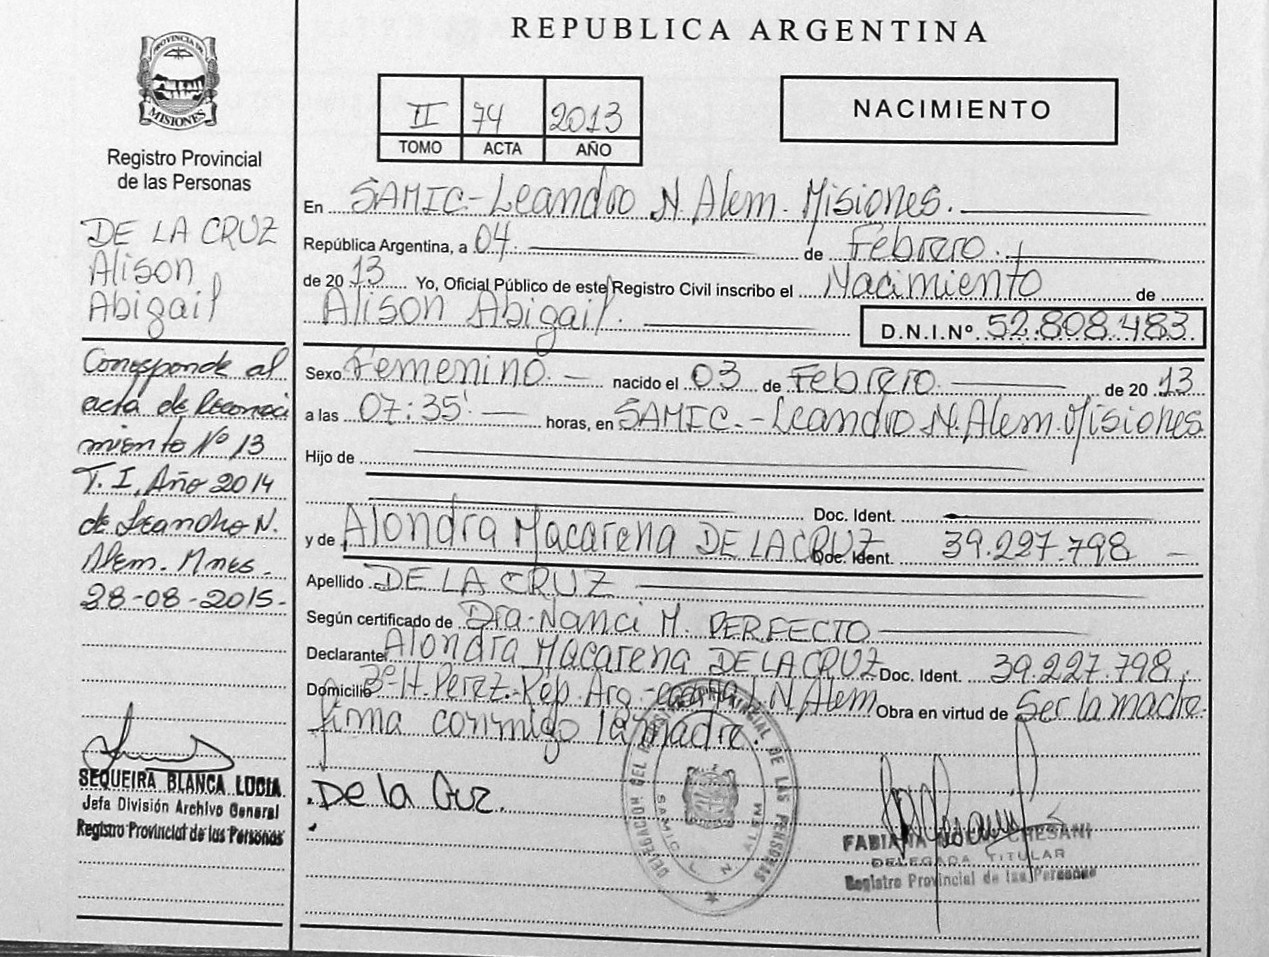 REPUBLICA ARGENTINA
PROVINCIA DE
MISIONES
Registro Provincial
de las Personas
II 74 2013
TOMO ACTA AÑO
NACIMIENTO
DE LA CRUZ
Alison
Abigail
Corresponde al
acta de Reconoci
miento Nº 13
T. I, Año 2014
de Leandro N.
Alem. Mnes.
28-08-2015.
SEQUEIRA BLANCA LUCIA
Jefa División Archivo General
Registro Provincial de las Personas
En SAMIC-Leandro N. Alem. Misiones.
República Argentina, a 04. de Febrero.
de 2013 Yo, Oficial Público de este Registro Civil inscribo el Nacimiento de
Alison Abigail. D.N.I.Nº. 52.808.483.
Sexo Femenino. nacido el 03 de Febrero. de 2013
a las 07:35' horas, en SAMIC.-Leandro N. Alem. Misiones.
Hijo de
Doc. Ident.
y de Alondra Macarena DE LA CRUZ Doc. Ident. 39.227.798
Apellido DE LA CRUZ
Según certificado de Dra. Nanci M. PERFECTO
Declarante Alondra Macarena DE LA CRUZ Doc. Ident. 39.227.798.
Domicilio Bº H. Perez.-Rep. Arg.- L. N. Alem Obra en virtud de Ser la madre.
firma conmigo la madre.
De la Cruz.
DELEGACION DEL REG. PROVINCIAL DE LAS PERSONAS
SAMIC L. N. ALEM
FABIANA NOEMI CHESANI
DELEGADA TITULAR
Registro Provincial de las Personas